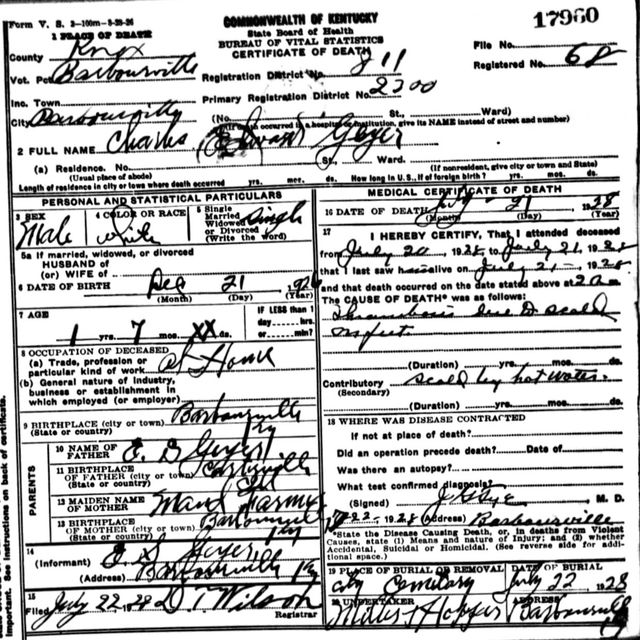 Form V. S. 2-100m-8-28-26
1 PLACE OF DEATH
COMMONWEALTH OF KENTUCKY
State Board of Health
BUREAU OF VITAL STATISTICS
CERTIFICATE OF DEATH
17960
County Knox
File No.
Vot. Pct Barbourville
Registration District No. 811
Registered No. 68
Inc. Town
Primary Registration District No. 2200
City Barbourville (No. St., Ward)
(If death occurred in a hospital or institution, give its NAME instead of street and number)
2 FULL NAME Charles Geyer
(a) Residence. No. St., Ward.
(Usual place of abode) (If nonresident, give city or town and State)
Length of residence in city or town where death occurred yrs. mos. ds. How long in U. S., if of foreign birth? yrs. mos. ds.
PERSONAL AND STATISTICAL PARTICULARS
3 SEX Male
4 COLOR OR RACE White
5 Single Married Widowed or Divorced (Write the word) Single
5a If married, widowed, or divorced
HUSBAND of
(or) WIFE of
6 DATE OF BIRTH Dec 21 1926
(Month) (Day) (Year)
7 AGE
1 yrs. 7 mos. XX ds.
IF LESS than 1
day hrs.
or min?
8 OCCUPATION OF DECEASED
(a) Trade, profession or
particular kind of work At Home
(b) General nature of industry,
business or establishment in
which employed (or employer)
9 BIRTHPLACE (city or town) Barbourville
(State or country) Ky
PARENTS
10 NAME OF
FATHER E. S. Geyer
11 BIRTHPLACE
OF FATHER (city or town)
(State or country)
12 MAIDEN NAME
OF MOTHER
13 BIRTHPLACE
OF MOTHER (city or town) Barbourville
(State or country) Ky
14
(Informant) E. S. Geyer
(Address) Barbourville Ky
15
Filed July 22, 28 D. T. Wilson
Registrar
MEDICAL CERTIFICATE OF DEATH
16 DATE OF DEATH July 21 1928
(Month) (Day) (Year)
17
I HEREBY CERTIFY, That I attended deceased
from July 20, 1928 to July 21, 1928
that I last saw h alive on July 21, 1928
and that death occurred on the date stated above at 2 a m
The CAUSE OF DEATH* was as follows:
Thrombosis due to scald
(Duration) yrs. mos. ds.
Contributory scald by hot water.
(Secondary)
(Duration) yrs. mos. ds.
18 WHERE WAS DISEASE CONTRACTED
If not at place of death?
Did an operation precede death? Date of
Was there an autopsy?
What test confirmed diagnosis?
(Signed) M. D.
22, 1928 (Address) Barbourville
*State the Disease Causing Death, or, in deaths from Violent
Causes, state (1) Means and nature of Injury; and (2) whether
Accidental, Suicidal or Homicidal. (See reverse side for addi-
tional space.)
19 PLACE OF BURIAL OR REMOVAL DATE OF BURIAL
City Cemetery July 22 1928
20 UNDERTAKER ADDRESS
Barbourville
Ky
important. See instructions on back of certificate.